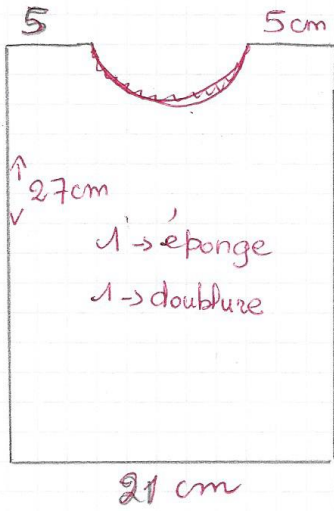 5
5cm
27cm
1 → éponge
1 → doublure
21 cm